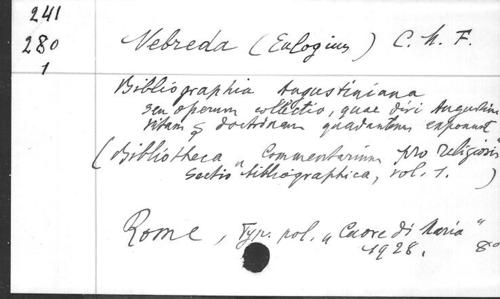 241
280
1
Nebreda (Eulogius) C. M. F.
Bibliographia Augustiniana
seu operum collectio, quae divi Augustini
vitam & doctrinam quadantenus exponunt
(Bibliotheca „Commentarium pro religiosis“
Sectio bibliographica, vol. 1. )
Rome, Typ. pol. „Cuore di Maria“
1928. 8º